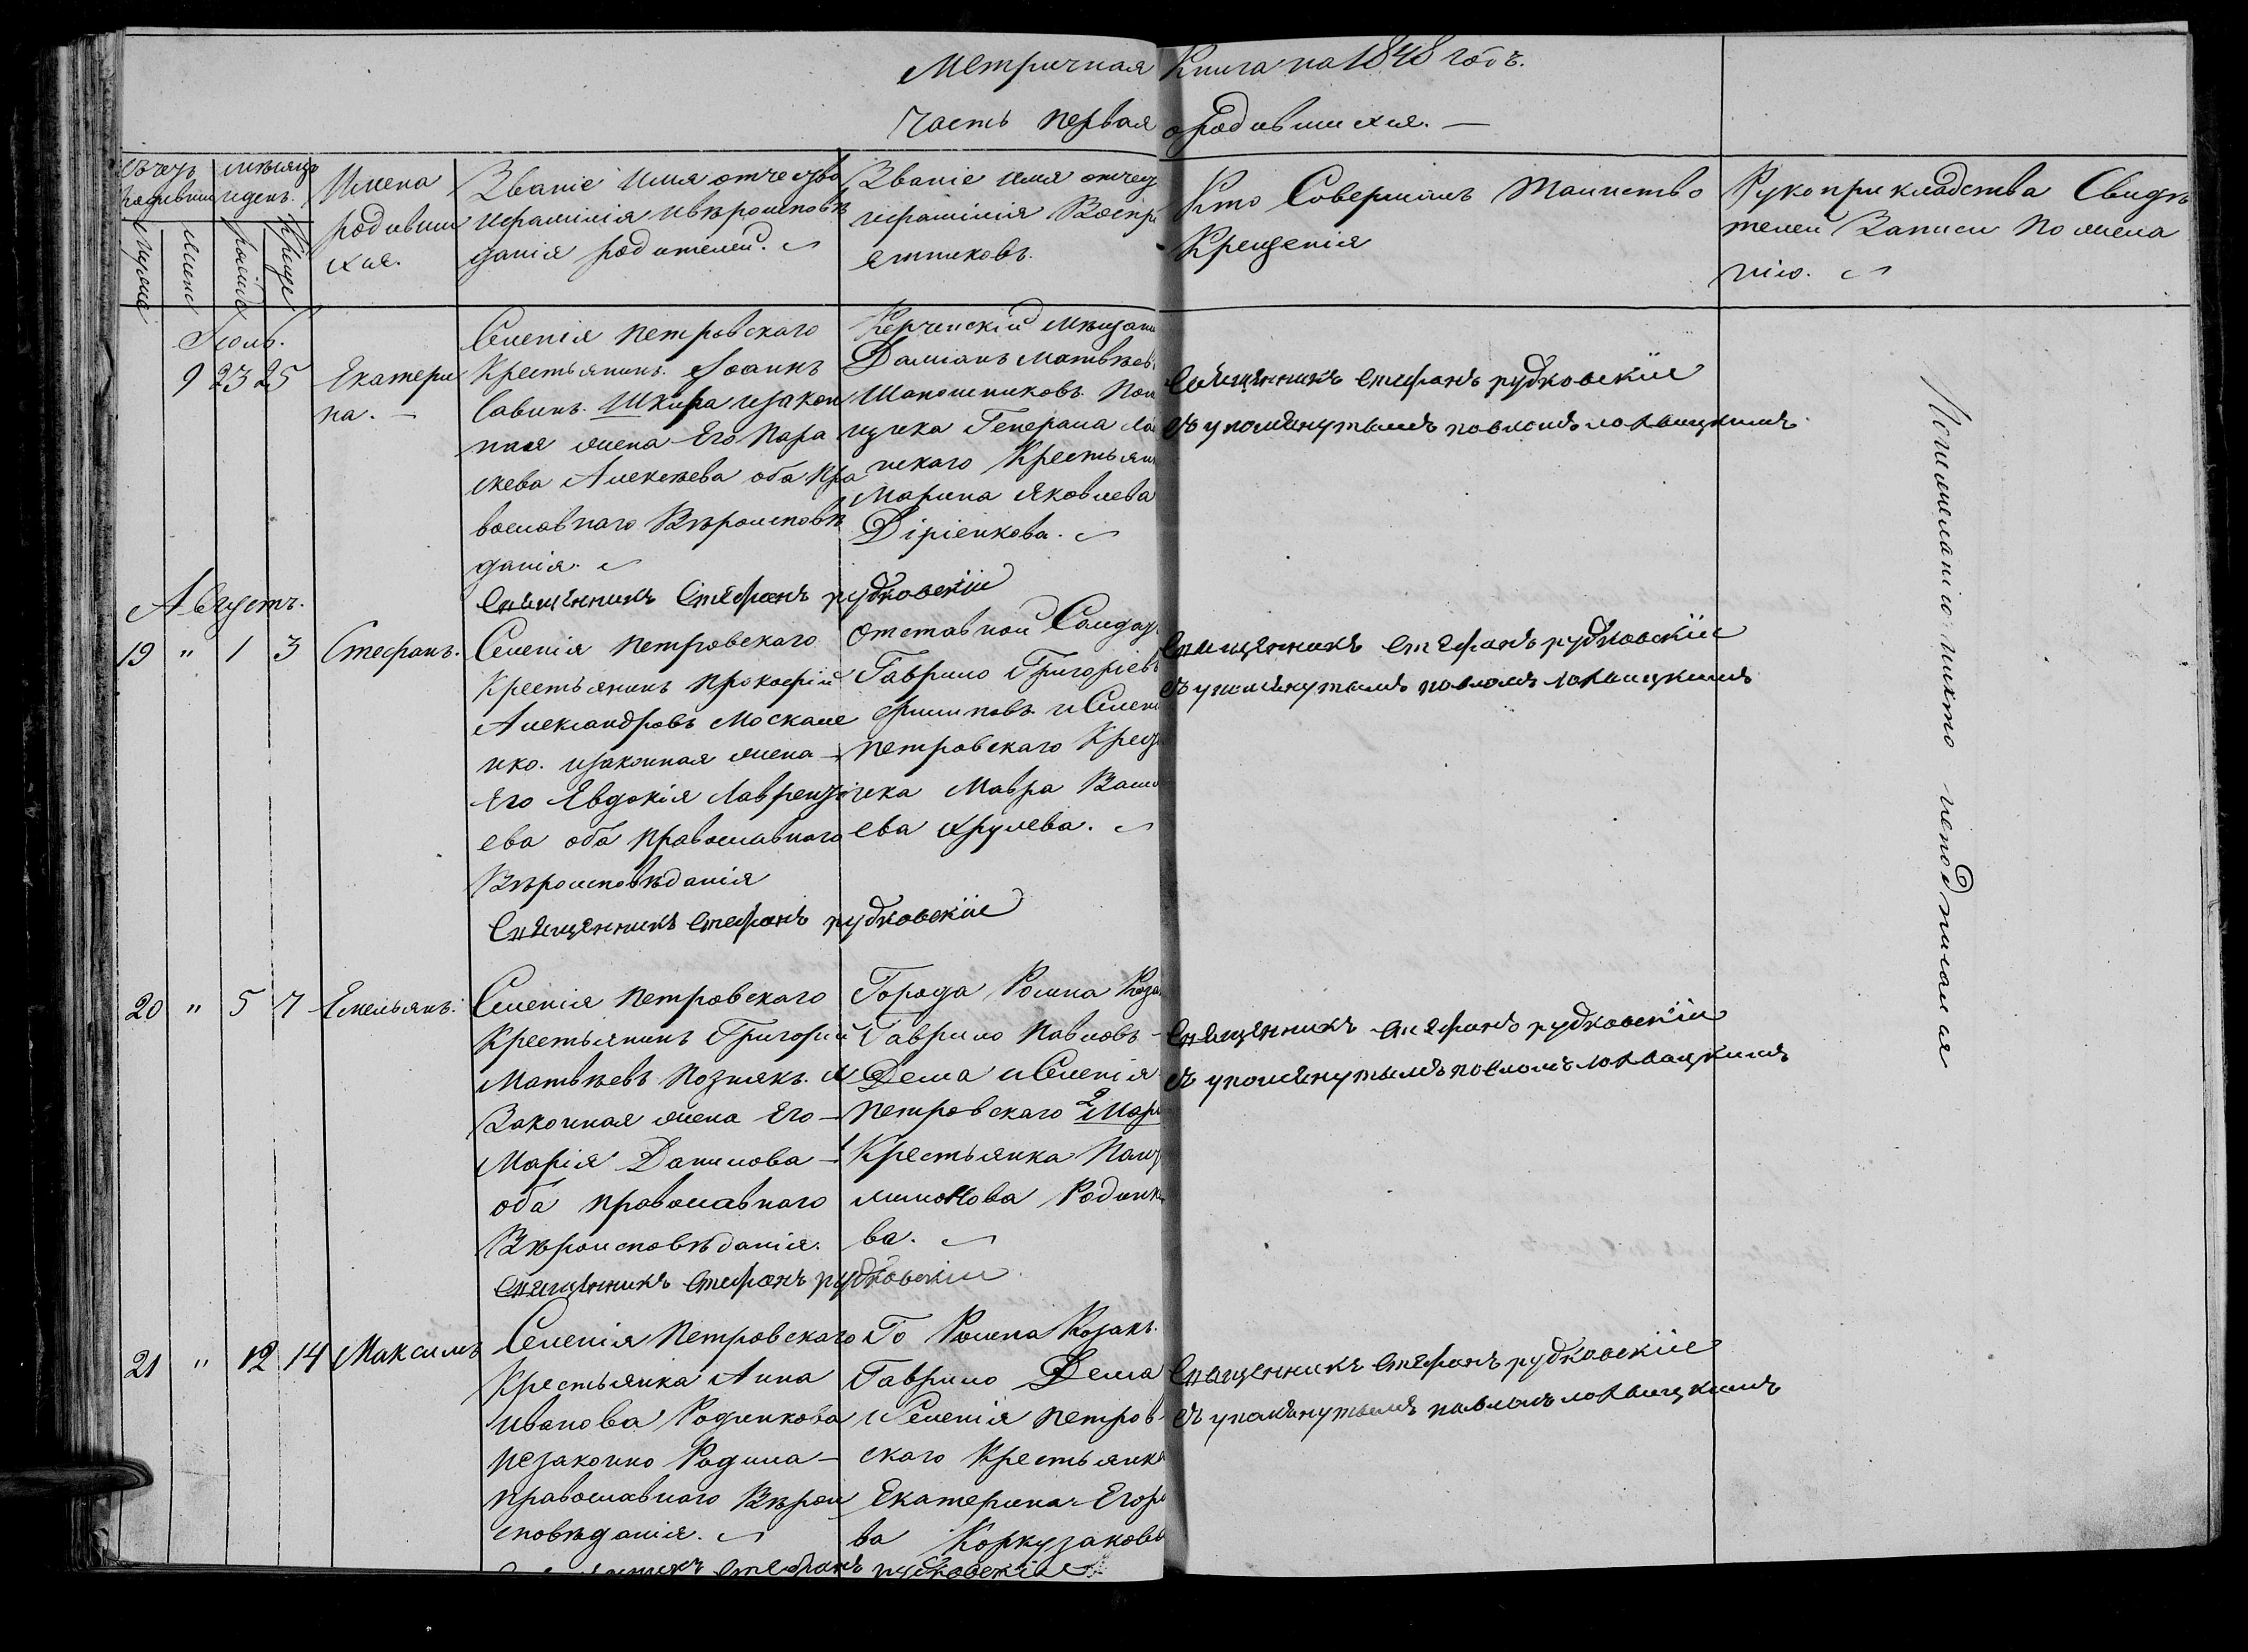 Метричная Книга на 1848 годъ.
Часть первая о родившихся. —
Счетъ родивши
мѣсяцъ и день.
Мужска
Женс
рожде
Креще
Имена
родивши
хся.
Званіе имя отчество
и фамилія и вѣроисповѣ
данія родителей.
Званіе имя отчес
и фамилія Воспрі
емниковъ.
Кто Совершалъ Таинство
Крещенія
Рукоприкладства Свидѣ
телей Записи по жела
нію.
Іюль.
9 23 25
Екатери
на. —
Селенія Петровскаго
Крестьянинъ Іоаннъ
Савинъ Шкира и закон
ная жена Его Пара
скева Алексѣева оба Пра
вославнаго Вѣроисповѣ
данія.
Священникъ Стефанъ рудковскій
Керченскій мѣщани
Даміанъ Матвѣев
Шапошниковъ. Пом
щика Генерала
нскаго Крестьян
Марина Яковлева
Діріенкова.
Священникъ Стефанъ рудковскій
съ упомянутымъ павломъ лохвицкимъ
Августъ.
19 " 1 3 Стефанъ.
Селенія Петровскаго
Крестьянинъ Прокофій
Александровъ Москале
нко. и законная жена —
Его Евдокія Лаврентi
ева оба Православнаго
Вѣроисповѣданія
Священникъ Стефанъ рудковскій
Отставной Солдат
Гаврило Григоріевъ
и Селені
Петровскаго Крест
нка Мавра Васил
ева Хрулева.
Священникъ Стефанъ рудковскій
съ упомянутымъ павломъ лохвицкимъ
20 " 5 7 Емельянъ.
Селенія Петровскаго
Крестьянинъ Григорій
Матвѣевъ Познякъ. и
Законная жена Его —
Марія Данилова —
оба Православнаго
Вѣроисповѣданія.
Священникъ Стефанъ рудковскій
Города Ромна Коза
Гаврило Павловъ —
Дема и Селенія
Петровскаго 2 Мар
1 Крестьянка Пан
лимонова Родинк
ва.
Священникъ Стефанъ рудковскій
съ упомянутымъ павломъ лохвицкимъ
21 " 12 14 Максимъ
Селенія Петровскаго
Крестьянка Анна
Иванова Родинкова
незаконно Родила —
Православнаго Вѣрои
сповѣданія.
Священникъ Стефанъ рудковскій
Го Ромена Козакъ.
Гаврило Дема
и Селенія Петров
скаго Крестьянка
Екатерина Егоро
ва Коркузакова
Священникъ Стефанъ рудковскій
съ упомянутымъ павломъ лохвицкимъ
По желанію никто неподписался